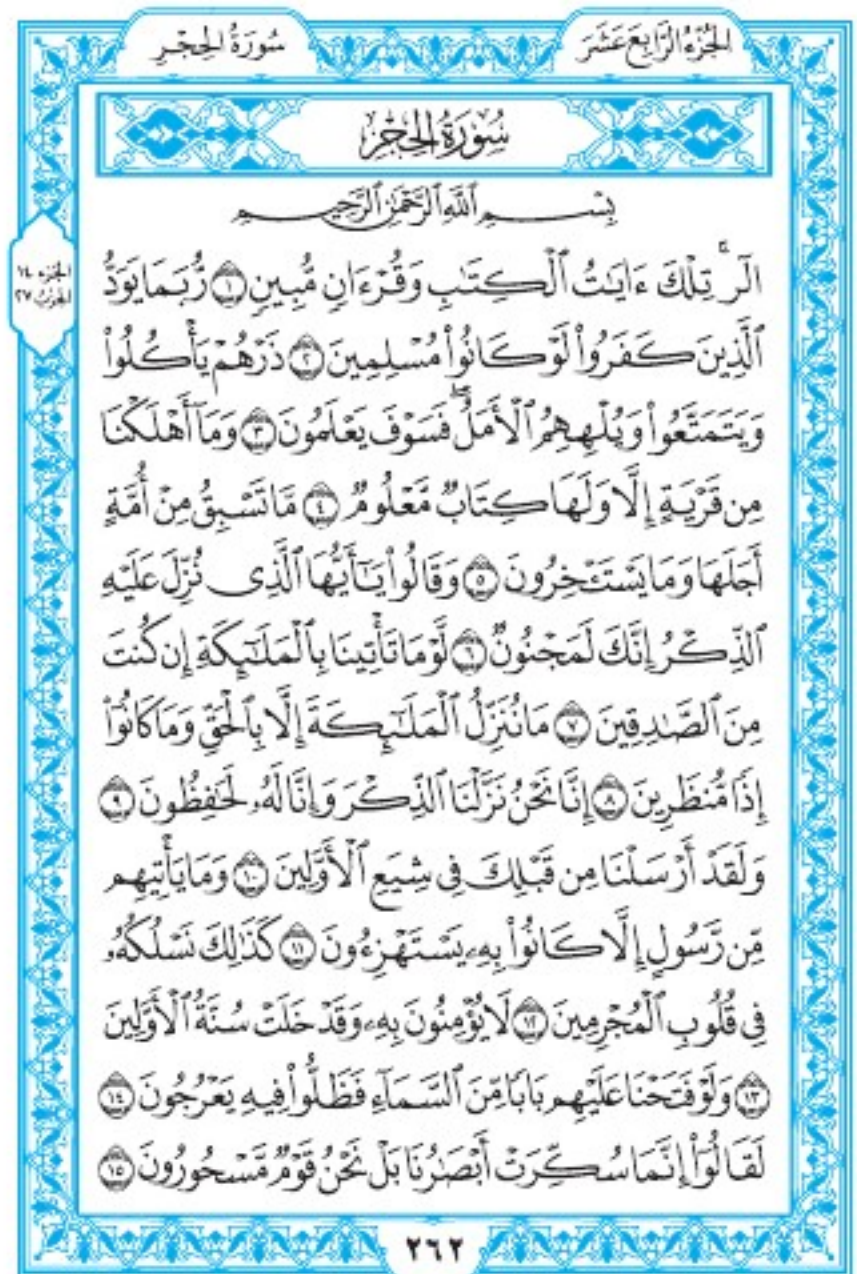 الجُزْءُ الرَّابِعَ عَشَرَ
سُورَةُ الحِجْرِ
سُورَةُ الحِجْرِ
بِسْمِ ٱللَّهِ ٱلرَّحْمَٰنِ ٱلرَّحِيمِ
الجزء ١٤
الحزب ٢٧
الٓرۚ تِلْكَ ءَايَٰتُ ٱلْكِتَٰبِ وَقُرْءَانٖ مُّبِينٖ ١ رُّبَمَا يَوَدُّ
ٱلَّذِينَ كَفَرُواْ لَوْ كَانُواْ مُسْلِمِينَ ٢ ذَرْهُمْ يَأْكُلُواْ
وَيَتَمَتَّعُواْ وَيُلْهِهِمُ ٱلْأَمَلُۖ فَسَوْفَ يَعْلَمُونَ ٣ وَمَآ أَهْلَكْنَا
مِن قَرْيَةٍ إِلَّا وَلَهَا كِتَابٞ مَّعْلُومٞ ٤ مَّا تَسْبِقُ مِنْ أُمَّةٍ
أَجَلَهَا وَمَا يَسْتَـْٔخِرُونَ ٥ وَقَالُواْ يَٰٓأَيُّهَا ٱلَّذِى نُزِّلَ عَلَيْهِ
ٱلذِّكْرُ إِنَّكَ لَمَجْنُونٞ ٦ لَّوْمَا تَأْتِينَا بِٱلْمَلَٰٓئِكَةِ إِن كُنتَ
مِنَ ٱلصَّٰدِقِينَ ٧ مَا نُنَزِّلُ ٱلْمَلَٰٓئِكَةَ إِلَّا بِٱلْحَقِّ وَمَا كَانُوٓاْ
إِذٗا مُّنظَرِينَ ٨ إِنَّا نَحْنُ نَزَّلْنَا ٱلذِّكْرَ وَإِنَّا لَهُۥ لَحَٰفِظُونَ ٩
وَلَقَدْ أَرْسَلْنَا مِن قَبْلِكَ فِى شِيَعِ ٱلْأَوَّلِينَ ١٠ وَمَا يَأْتِيهِم
مِّن رَّسُولٍ إِلَّا كَانُواْ بِهِۦ يَسْتَهْزِءُونَ ١١ كَذَٰلِكَ نَسْلُكُهُۥ
فِى قُلُوبِ ٱلْمُجْرِمِينَ ١٢ لَا يُؤْمِنُونَ بِهِۦ وَقَدْ خَلَتْ سُنَّةُ ٱلْأَوَّلِينَ
١٣ وَلَوْ فَتَحْنَا عَلَيْهِم بَابٗا مِّنَ ٱلسَّمَآءِ فَظَلُّواْ فِيهِ يَعْرُجُونَ ١٤
لَقَالُوٓاْ إِنَّمَا سُكِّرَتْ أَبْصَٰرُنَا بَلْ نَحْنُ قَوْمٞ مَّسْحُورُونَ ١٥
٢٦٢